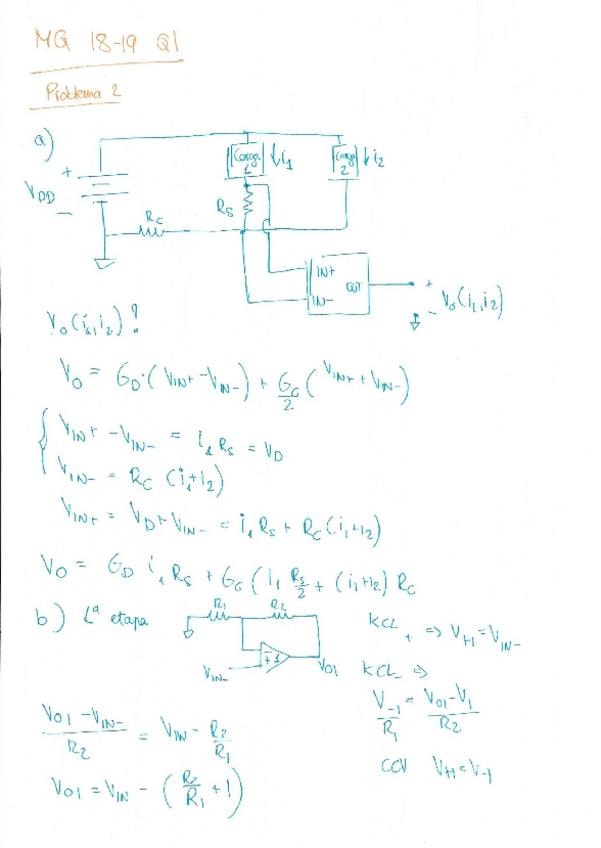 MQ 18-19 Q1
Problema 2
a)
+
VDD
-
Carga 1 ↓i1
Carga 2 ↓i2
RS
RC
IN+
IN-
OUT
+
Vo(i1,i2)
-
Vo(i1,i2)?
Vo = GD·(VIN+ - VIN-) + GC/2 (VIN+ + VIN-)
{ VIN+ - VIN- = i1 RS = VD
VIN- = RC (i1+i2)
VIN+ = VD + VIN- = i1 RS + RC (i1+i2)
Vo = GD i1 RS + GC (i1 RS/2 + (i1+i2) RC
b) 1ª etapa
R1
R2
VIN-
+1
VO1
KCL+ => V+1 = VIN-
KCL- =>
V-1/R1 = VO1-V1/R2
CCV V+1 = V-1
VO1 - VIN-/R2 = VIN- R2/R1
VO1 = VIN- (R2/R1 + 1)